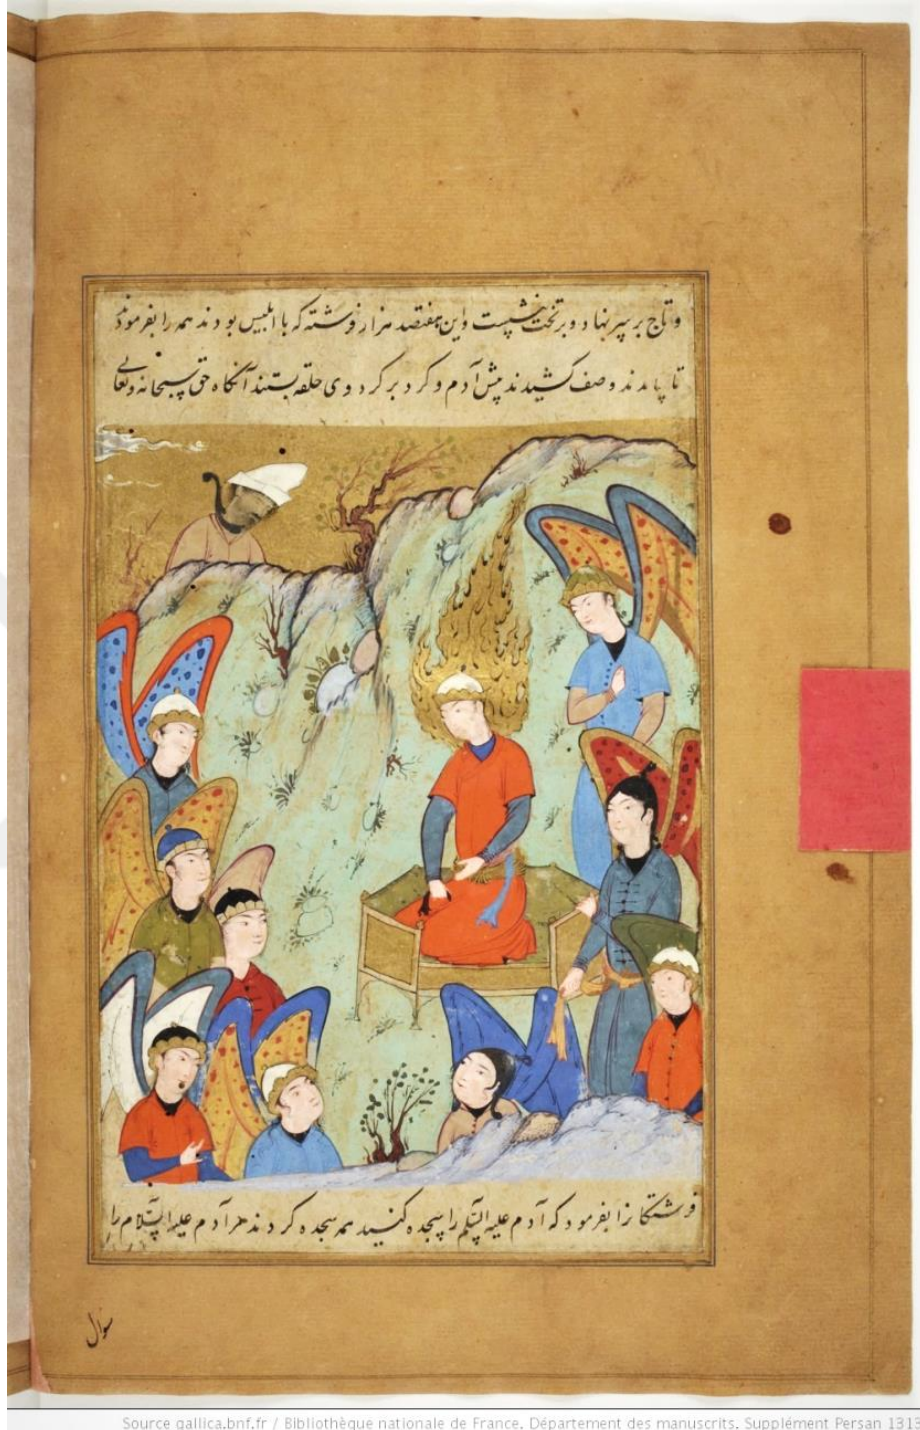 و تاج بر سر نهاد و بر تخت بنشست و این هفتصد هزار فرشته که با ابلیس بودند همه را بفرمود
تا بیامدند و صف کشیدند پیش آدم و کرد بر کرد وی حلقه بستند آنکاه حق سبحانه و تعالی
فرشتکانرا بفرمود که آدم علیه السلم را سجده کنید همه سجده کردند مر آدم علیه السلام را
سوال
Source gallica.bnf.fr / Bibliothèque nationale de France. Département des manuscrits. Supplément Persan 1313